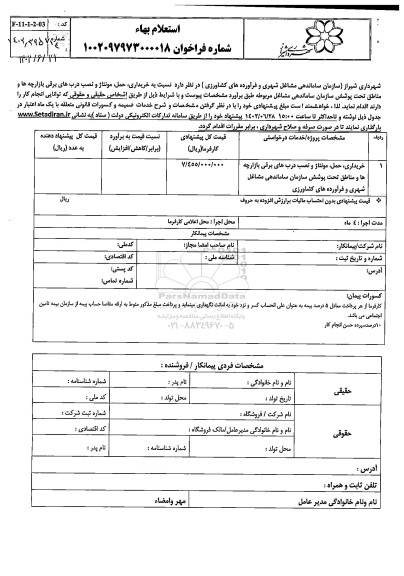 F-11-1-2-03
کد :
استعلام بهاء
شماره فراخوان ۱۰۰۲۰۹۷۹۷۳۰۰۰۰۱۸
شهرداری شیراز (سازمان ساماندهی مشاغل شهری و فرآورده های کشاورزی ) در نظر دارد نسبت به خریداری، حمل، مونتاژ و نصب درب های برقی بازارچه ها و
مناطق تحت پوشش سازمان ساماندهی مشاغل مربوطه طبق برآورد مشخصات پیوست و با شرایط ذیل از طریق اشخاص حقیقی و حقوقی که توانایی انجام کار را
دارند اقدام نماید. لذا ، خواهشمند است مبلغ پیشنهادی خود را با در نظر گرفتن مشخصات و شرح خدمات ضمیمه و کسورات قانونی متعلقه با یک ماه اعتبار در
جدول ذیل نوشته و حداکثر تا ساعت ۱۵:۰۰ ۱۴۰۲/۰۶/۲۸ پیشنهاد خود را از طریق سامانه تدارکات الکترونیکی دولت ( ستاد )به نشانی www.Setadiran.ir
بارگذاری نمایند تا در صورت صرفه و صلاح شهرداری ، برابر مقررات اقدام گردد.
ردیف
مشخصات پروژه/خدمات درخواستی
قیمت کل پیشنهادی کارفرما(ریال)
نسبت قیمت به برآورد (برابر/کاهش/افزایش)
قیمت کل پیشنهاد دهنده به عدد (ریال)
۱
خریداری، حمل، مونتاژ و نصب درب های برقی بازارچه
ها و مناطق تحت پوشش سازمان ساماندهی مشاغل
شهری و فرآورده های کشاورزی
۷/۴۵۵/۰۰۰/۰۰۰
قیمت پیشنهادی بدون احتساب مالیات برارزش افزوده به حروف
ریال
مدت اجرا : ٤ ماه
محل اجرا : محل اعلامی کارفرما
مشخصات پیمانکار
نام شرکت/پیمانکار:
نام صاحب امضا مجاز:
کدملی:
شماره و تاریخ ثبت :
شناسه ملی :
کد اقتصادی:
آدرس:
کد پستی:
شماره تماس:
ParsNamadData
پایگاه اطلاع رسانی مناقصه و مزایده
۰۲۱-۸۸۳۴۹۶۷۰-۵
کسورات پیمان:
کارفرما از هر پرداخت معادل ۵ درصد بیمه به عنوان علی الحساب کسر و نزد خود به امانت نگهداری مینماید و پرداخت مبلغ مذکور منوط به ارائه مفاصا حساب بیمه از سازمان بیمه تامین
اجتماعی می باشد.
۱۰درصدسپرده حسن انجام کار
مشخصات فردی پیمانکار / فروشنده :
حقیقی
نام و نام خانوادگی :
نام پدر :
شماره شناسنامه :
تاریخ تولد :
محل تولد :
کد ملی :
حقوقی
نام شرکت / فروشگاه :
شماره ثبت شرکت :
نام و نام خانوادگی مدیرعامل/مالک فروشگاه :
کد اقتصادی :
محل تولد :
شماره شناسنامه :
نام پدر :
آدرس :
تلفن ثابت و همراه :
نام ونام خانوادگی مدیر عامل
مهر وامضاء